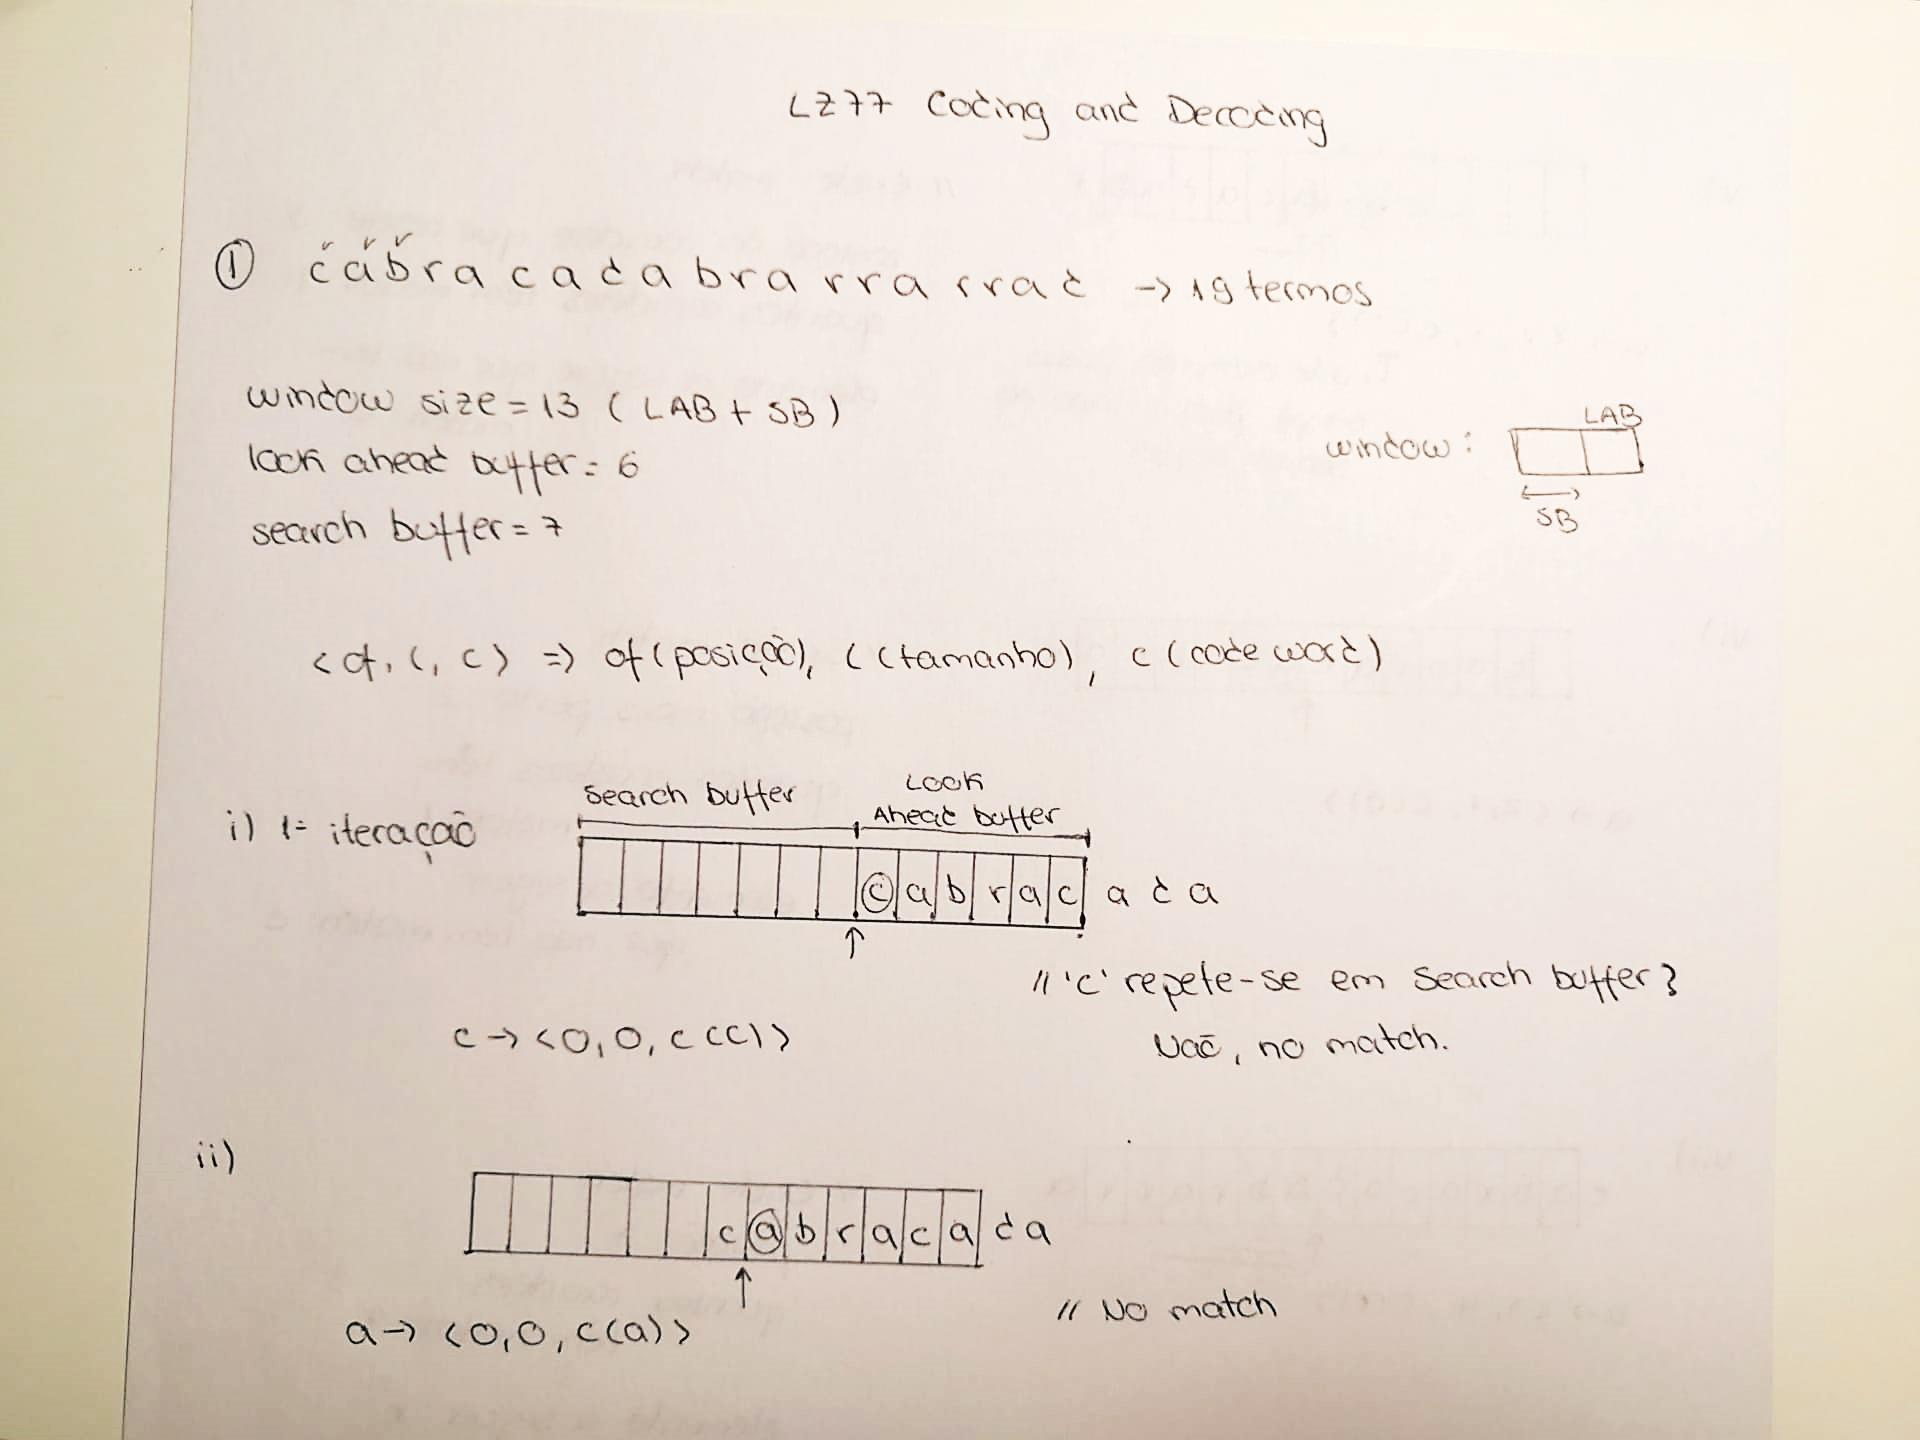 LZ77 Coding and Decoding
① cabracadabrarrarrad -> 19 termos
window size = 13 ( LAB + SB )
look ahead buffer = 6
search buffer = 7
window :
LAB
SB
<of, l, c> => of (posição), l (tamanho), c (code word)
i) 1ª iteração
Search buffer
Look
Ahead buffer
c a b r a c a d a
// 'c' repete-se em Search buffer?
c -> <0, 0, c(c)>
Não, no match.
ii)
c a b r a c a d a
// No match
a -> <0, 0, c(a)>